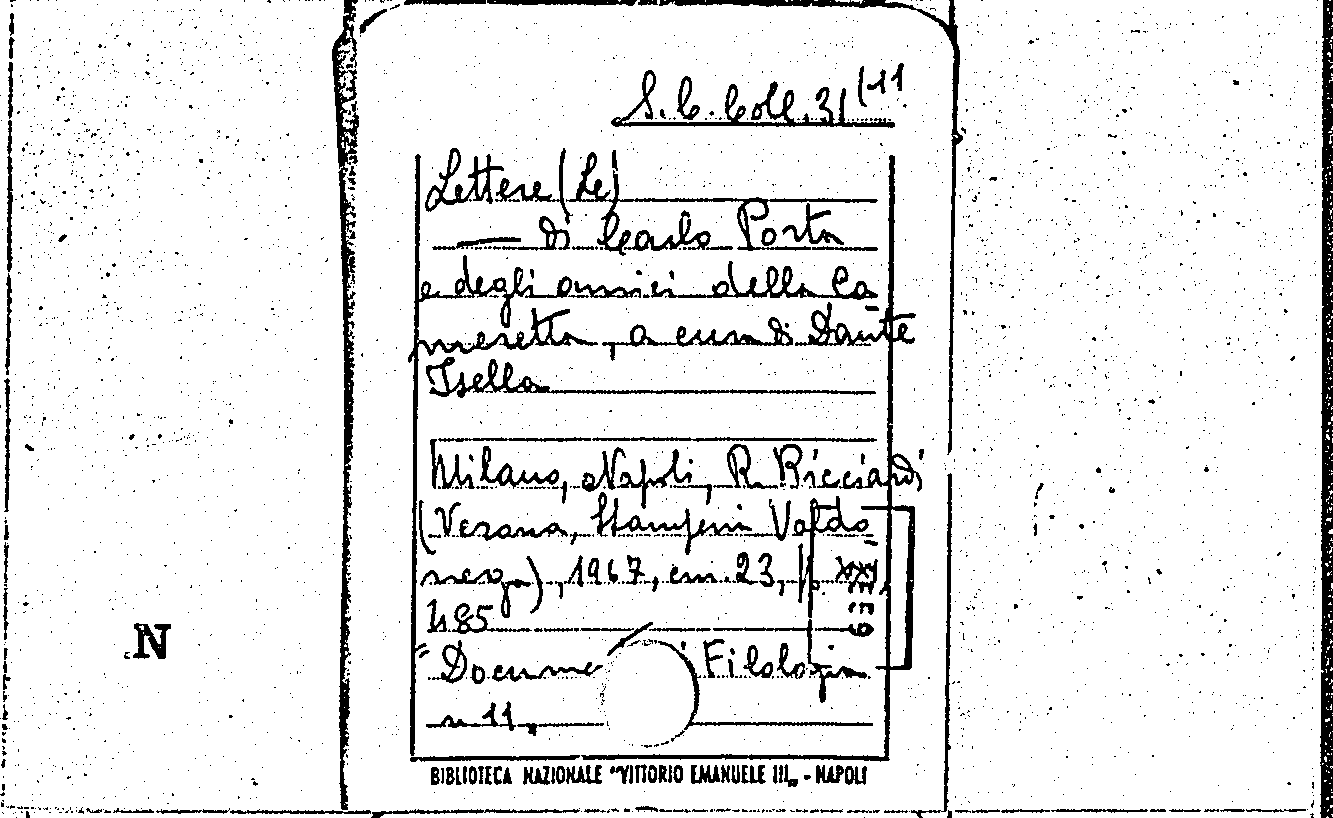 S. C. Coll. 31 (11
Lettere (Le)
— di Carlo Porta
e degli amici della Ca
meretta, a cura di Dante
Isella
Milano, Napoli, R. Ricciardi
(Verona, Stamperia Valdo
nega), 1967, cm. 23, p.
485
"Docume Filologia
n 11„
BIBLIOTECA NAZIONALE "VITTORIO EMANUELE III„ - NAPOLI
N